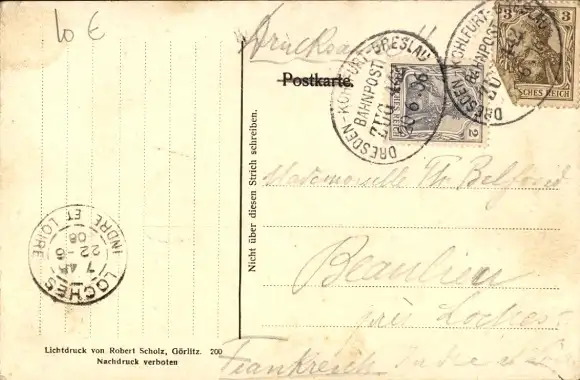 10 €
Drucksache
Postkarte.
DRESDEN-KOHLFURT-BRESLAU
BAHNPOST
ZUG
20 6 06
DRESDEN-KOHLFURT-BRESLAU
BAHNPOST
ZUG
2
DEUTSCHES REICH
3
DEUTSCHES REICH
Nicht über diesen Strich schreiben.
Mademoiselle Th. Belford
Beaulieu
près Loches
Indre et
Frankreich
LOCHES
INDRE ET LOIRE
7 45
22-6
08
Lichtdruck von Robert Scholz, Görlitz. 200
Nachdruck verboten